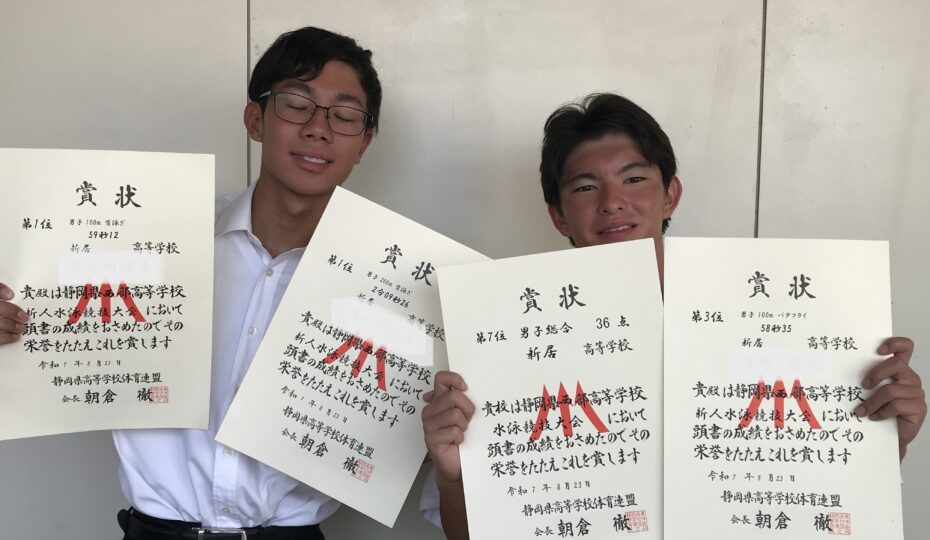 賞状
第1位 男子 100m 背泳ぎ
59秒12
新居 高等学校
貴殿は静岡県西部高等学校
新人水泳競技大会において
頭書の成績をおさめたのでその
栄誉をたたえこれを賞します
令和7年8月23日
静岡県高等学校体育連盟
会長 朝倉 徹
賞状
第1位 男子 200m 背泳ぎ
2分09秒26
新居 高等学校
貴殿は静岡県西部高等学校
新人水泳競技大会において
頭書の成績をおさめたのでその
栄誉をたたえこれを賞します
令和7年8月23日
静岡県高等学校体育連盟
会長 朝倉 徹
賞状
第7位 男子総合 36点
新居 高等学校
貴校は静岡県西部高等学校
水泳競技大会において
頭書の成績をおさめたのでその
栄誉をたたえこれを賞します
令和7年8月23日
静岡県高等学校体育連盟
会長 朝倉 徹
賞状
第3位 男子 100m バタフライ
58秒35
新居 高等学校
貴殿は静岡県西部高等学校
新人水泳競技大会において
頭書の成績をおさめたのでその
栄誉をたたえこれを賞します
令和7年8月23日
静岡県高等学校体育連盟
会長 朝倉 徹